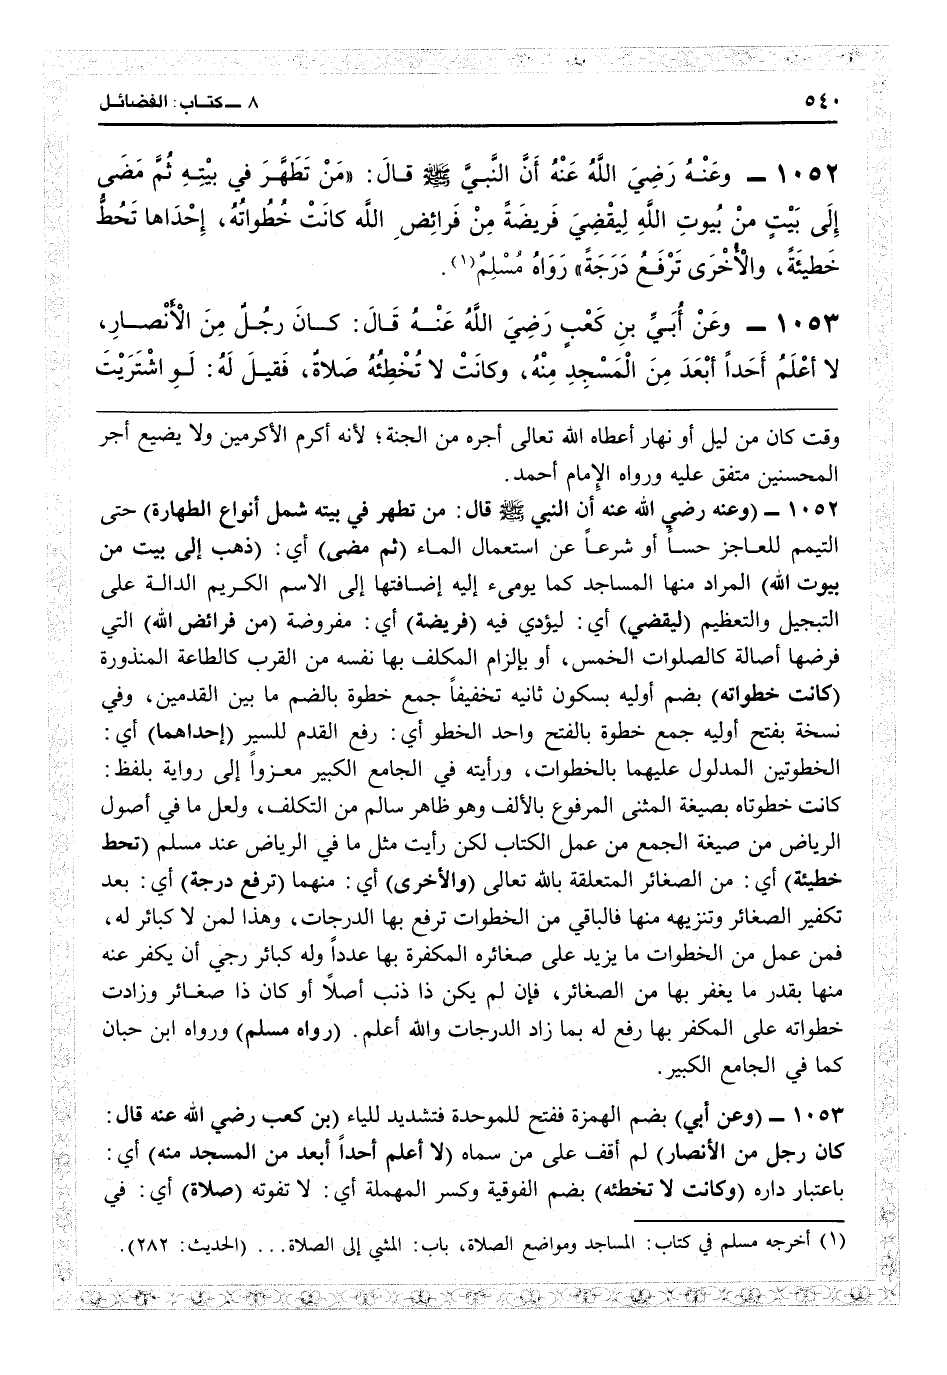 ٥٤٠ ٨ ــ كتاب: الفضائل
١٠٥٢ ــ وعَنْهُ رَضِيَ اللَّهُ عَنْهُ أَنَّ النَّبيَّ ﷺ قالَ: «مَنْ تَطَهَّرَ في بيْتِهِ ثُمَّ مَضَى
إلَى بَيْتٍ منْ بُيوتِ اللَّهِ لِيقْضِيَ فَريضَةً مِنْ فَرائِضِ اللَّه كانَتْ خُطُواتُهُ، إحْدَاها تَحُطُّ
خَطيئَةً، والْأُخْرَى تَرْفَعُ دَرَجَةً» رَوَاهُ مُسْلِمٌ(١).
١٠٥٣ ــ وعَنْ أُبَيِّ بنِ كَعْبٍ رَضِيَ اللَّهُ عَنْهُ قَالَ: كانَ رجُلٌ مِنَ الْأَنْصارِ،
لا أعْلَمُ أَحَداً أبْعَدَ مِنَ الْمَسْجِدِ مِنْهُ، وكانَتْ لا تُخْطِئُهُ صَلاةٌ، فَقيلَ لَهُ: لَوِ اشْتَرَيْتَ
وقت كان من ليل أو نهار أعطاه الله تعالى أجره من الجنة؛ لأنه أكرم الأكرمين ولا يضيع أجر
المحسنين متفق عليه ورواه الإمام أحمد.
١٠٥٢ ــ (وعنه رضي الله عنه أن النبي ﷺ قال: من تطهر في بيته شمل أنواع الطهارة) حتى
التيمم للعاجز حساً أو شرعاً عن استعمال الماء (ثم مضى) أي: (ذهب إلى بيت من
بيوت الله) المراد منها المساجد كما يومىء إليه إضافتها إلى الاسم الكريم الدالة على
التبجيل والتعظيم (ليقضي) أي: ليؤدي فيه (فريضة) أي: مفروضة (من فرائض الله) التي
فرضها أصالة كالصلوات الخمس، أو بإلزام المكلف بها نفسه من القرب كالطاعة المنذورة
(كانت خطواته) بضم أوليه بسكون ثانيه تخفيفاً جمع خطوة بالضم ما بين القدمين، وفي
نسخة بفتح أوليه جمع خطوة بالفتح واحد الخطو أي: رفع القدم للسير (إحداهما) أي:
الخطوتين المدلول عليهما بالخطوات، ورأيته في الجامع الكبير معزواً إلى رواية بلفظ:
كانت خطوتاه بصيغة المثنى المرفوع بالألف وهو ظاهر سالم من التكلف، ولعل ما في أصول
الرياض من صيغة الجمع من عمل الكتاب لكن رأيت مثل ما في الرياض عند مسلم (تحط
خطيئة) أي: من الصغائر المتعلقة بالله تعالى (والأخرى) أي: منهما (ترفع درجة) أي: بعد
تكفير الصغائر وتنزيهه منها فالباقي من الخطوات ترفع بها الدرجات، وهذا لمن لا كبائر له،
فمن عمل من الخطوات ما يزيد على صغائره المكفرة بها عدداً وله كبائر رجي أن يكفر عنه
منها بقدر ما يغفر بها من الصغائر، فإن لم يكن ذا ذنب أصلاً أو كان ذا صغائر وزادت
خطواته على المكفر بها رفع له بما زاد الدرجات والله أعلم. (رواه مسلم) ورواه ابن حبان
كما في الجامع الكبير.
١٠٥٣ ــ (وعن أبي) بضم الهمزة ففتح للموحدة فتشديد للياء (بن كعب رضي الله عنه قال:
كان رجل من الأنصار) لم أقف على من سماه (لا أعلم أحداً أبعد من المسجد منه) أي:
باعتبار داره (وكانت لا تخطئه) بضم الفوقية وكسر المهملة أي: لا تفوته (صلاة) أي: في
(١) أخرجه مسلم في كتاب: المساجد ومواضع الصلاة، باب: المشي إلى الصلاة... (الحديث: ٢٨٢).